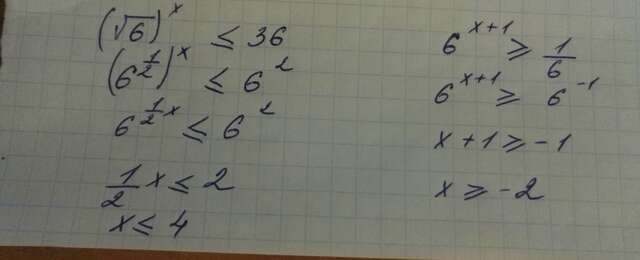 (√6)^x ≤ 36
(6^(1/2))^x ≤ 6^2
6^(1/2 x) ≤ 6^2
1/2 x ≤ 2
x ≤ 4
6^(x+1) ≥ 1/6
6^(x+1) ≥ 6^(-1)
x + 1 ≥ -1
x ≥ -2